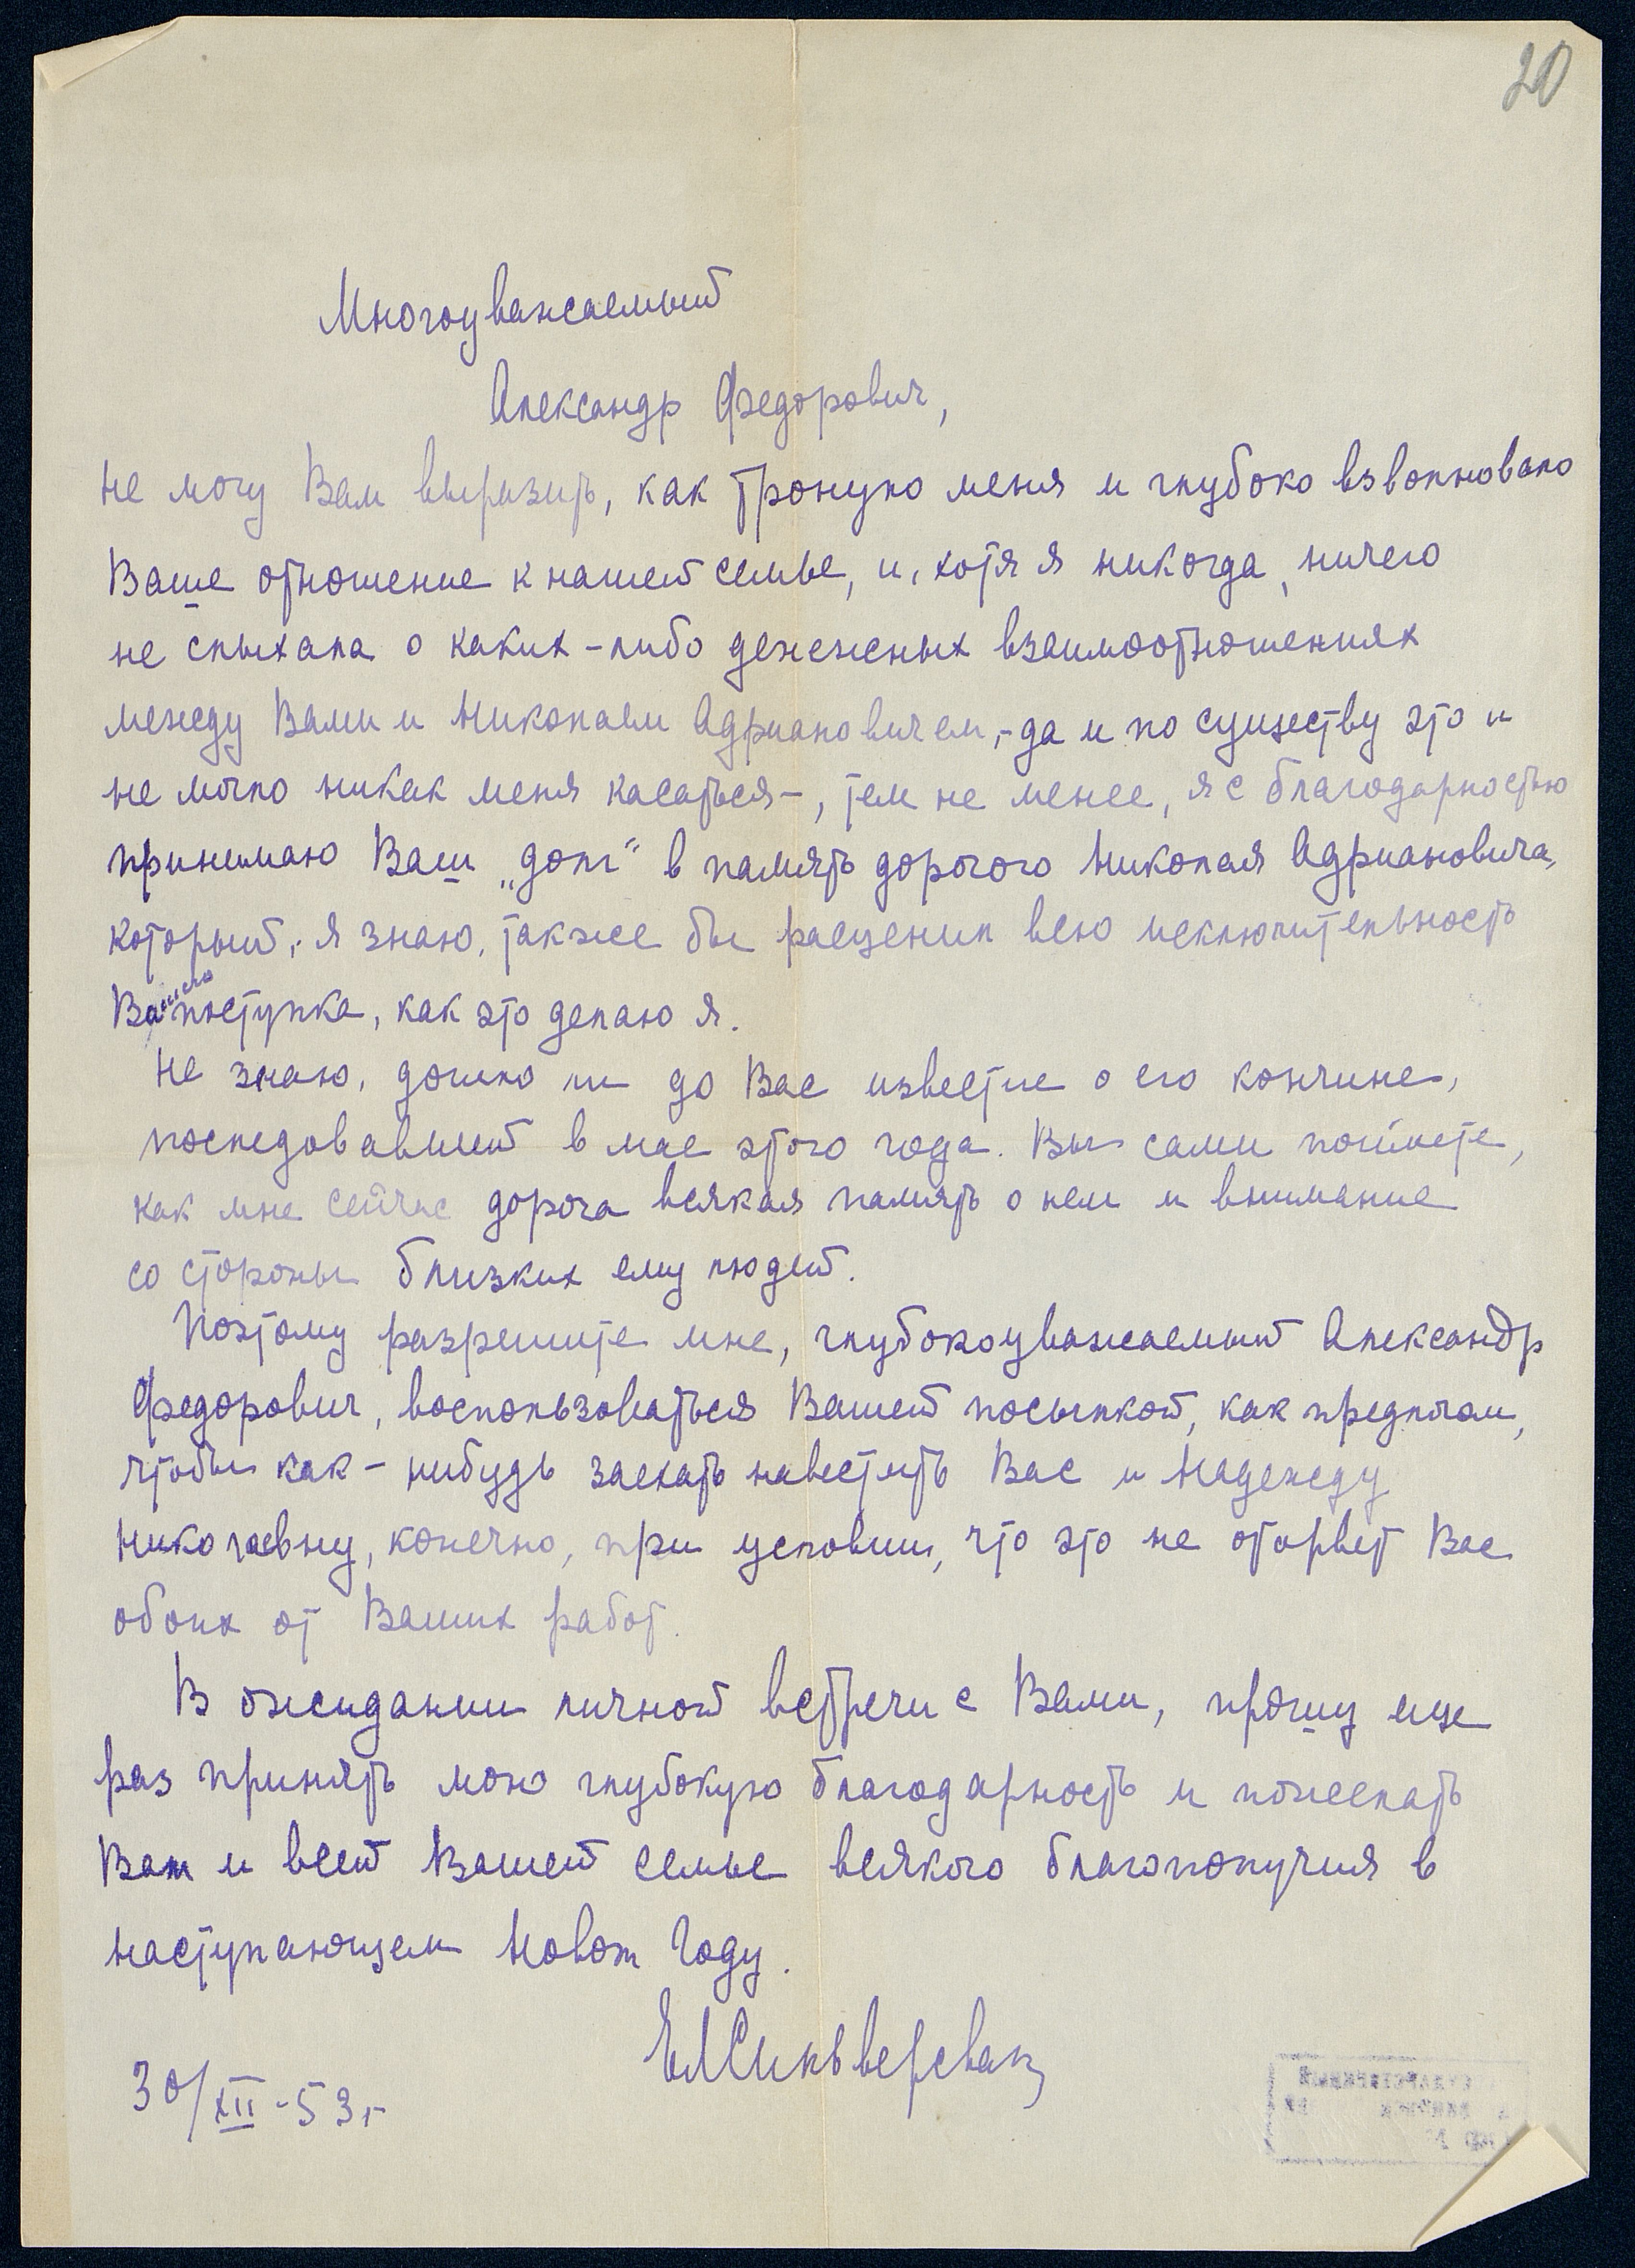 20
Многоуважаемый
Александр Федорович,
не могу Вам выразить, как тронуло меня и глубоко взволновало
Ваше отношение к нашей семье, и, хотя я никогда, ничего
не слыхала о каких-либо денежных взаимоотношениях
между Вами и Николаем Адриановичем,-да и по существу это и
не могло никак меня касаться-, тем не менее, я с благодарностью
принимаю Ваш „долг“ в память дорогого Николая Адриановича,
который, я знаю, также бы расценил всю исключительность
Вашего поступка, как это делаю я.
Не знаю, дошло ли до Вас известие о его кончине,
последовавшей в мае этого года. Вы сами поймете,
как мне сейчас дорога всякая память о нем и внимание
со стороны близких ему людей.
Поэтому разрешите мне, глубокоуважаемый Александр
Федорович, воспользоваться Вашей посылкой, как предлогом,
чтобы как-нибудь заехать навестить Вас и Надежду
Николаевну, конечно, при условии, что это не оторвет Вас
обоих от Ваших работ.
В ожидании личной встречи с Вами, прошу еще
раз принять мою глубокую благодарность и пожелать
Вам и всей Вашей семье всякого благополучия в
наступающем Новом Году.
30/XII-53г